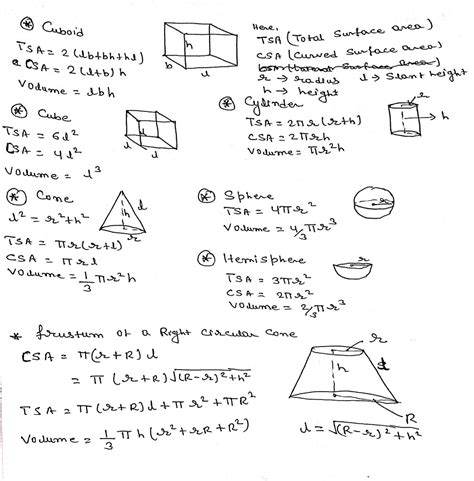 * Cuboid
TSA = 2(lb+bh+hl)
CSA = 2(l+b)h
Volume = lbh
h
b
l
Here,
TSA (Total Surface area)
CSA (Curved Surface area)
r → radius l → Slant height
h → height
* Cube
TSA = 6l²
CSA = 4l²
Volume = l³
l
l
l
* Cylinder
TSA = 2πr(r+h)
CSA = 2πrh
Volume = πr²h
r
h
* Cone
l² = r²+h²
TSA = πr(r+l)
CSA = πrl
Volume = 1/3 πr²h
l
h
r
* Sphere
TSA = 4πr²
Volume = 4/3 πr³
r
* Hemisphere
TSA = 3πr²
CSA = 2πr²
Volume = 2/3 πr³
r
* frustum of a Right circular Cone
CSA = π(r+R)l
= π(r+R)√(R-r)²+h²
TSA = π(r+R)l+πr²+πR²
Volume = 1/3 πh(r²+rR+R²)
r
h
R
l = √(R-r)²+h²